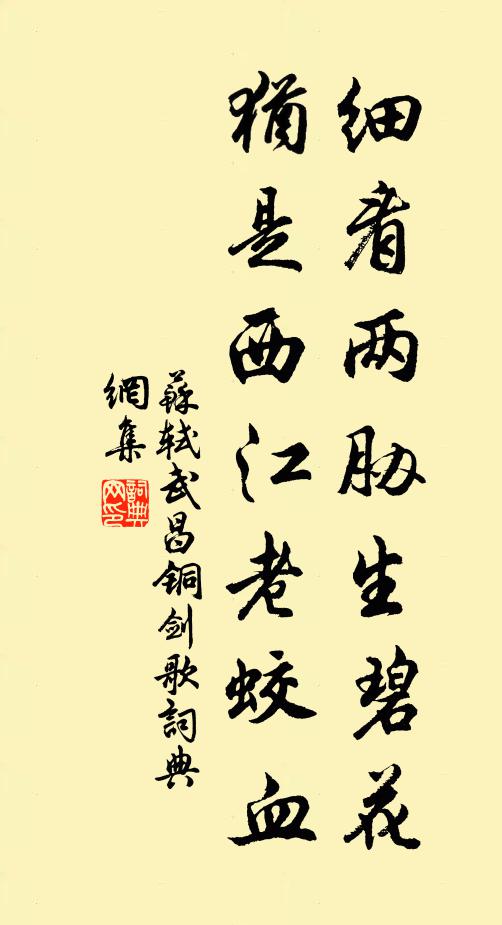 细看两胁生碧花
犹是西江老蛟血
蘇轼武昌铜剑歌詞典
網集
詞典
网印